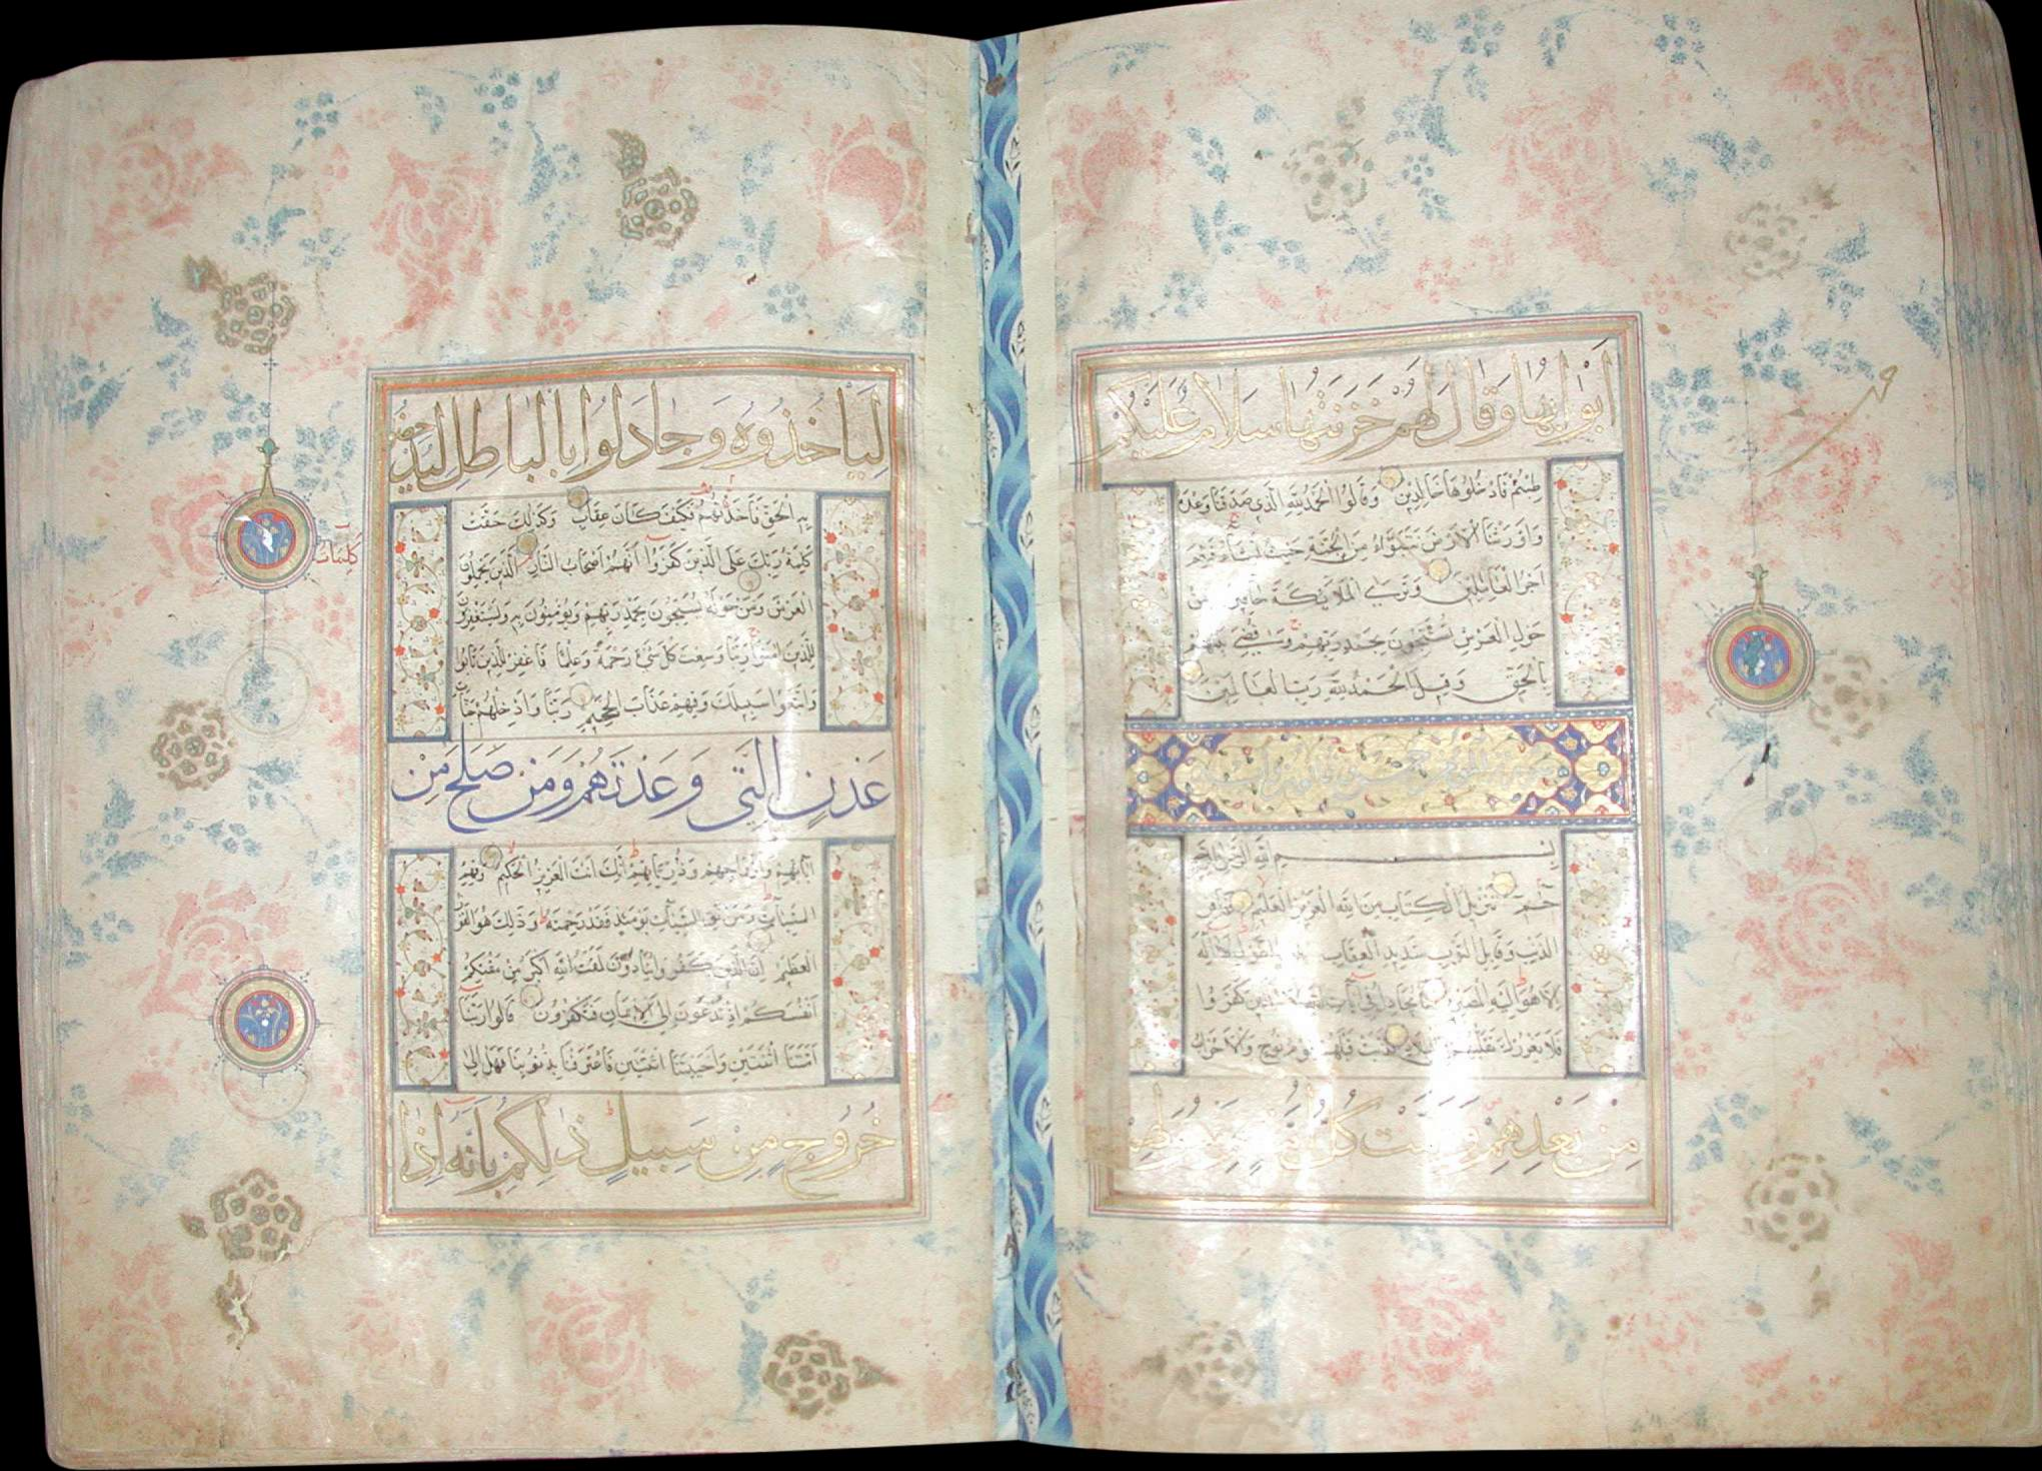 أبوابها وقال لهم خزنتها سلام عليكم
طبتم فادخلوها خالدين وقالوا الحمد لله الذي صدقنا وعده
وأورثنا الأرض نتبوأ من الجنة حيث نشاء فنعم
أجر العاملين وترى الملائكة حافين من
حول العرش يسبحون بحمد ربهم وقضي بينهم
بالحق وقيل الحمد لله رب العالمين
بسم الله الرحمن الرحيم
حم تنزيل الكتاب من الله العزيز العليم غافر
الذنب وقابل التوب شديد العقاب ذي الطول لا إله
إلا هو إليه المصير ما يجادل في آيات الله إلا الذين كفروا
فلا يغررك تقلبهم في البلاد كذبت قبلهم قوم نوح والأحزاب
من بعدهم وهمت كل أمة
ليأخذوه وجادلوا بالباطل ليدحضوا
به الحق فأخذتهم فكيف كان عقاب وكذلك حقت
كلمة ربك على الذين كفروا أنهم أصحاب النار الذين يحملون
كلمات
العرش ومن حوله يسبحون بحمد ربهم ويؤمنون به ويستغفرون
للذين آمنوا ربنا وسعت كل شيء رحمة وعلما فاغفر للذين تابوا
واتبعوا سبيلك وقهم عذاب الجحيم ربنا وأدخلهم جنات
عدن التي وعدتهم ومن صلح من
آبائهم وأزواجهم وذرياتهم إنك أنت العزيز الحكيم وقهم
السيئات ومن تق السيئات يومئذ فقد رحمته وذلك هو الفوز
العظيم إن الذين كفروا ينادون لمقت الله أكبر من مقتكم
أنفسكم إذ تدعون إلى الإيمان فتكفرون قالوا ربنا
أمتنا اثنتين وأحييتنا اثنتين فاعترفنا بذنوبنا فهل إلى
خروج من سبيل ذلكم بأنه إذا